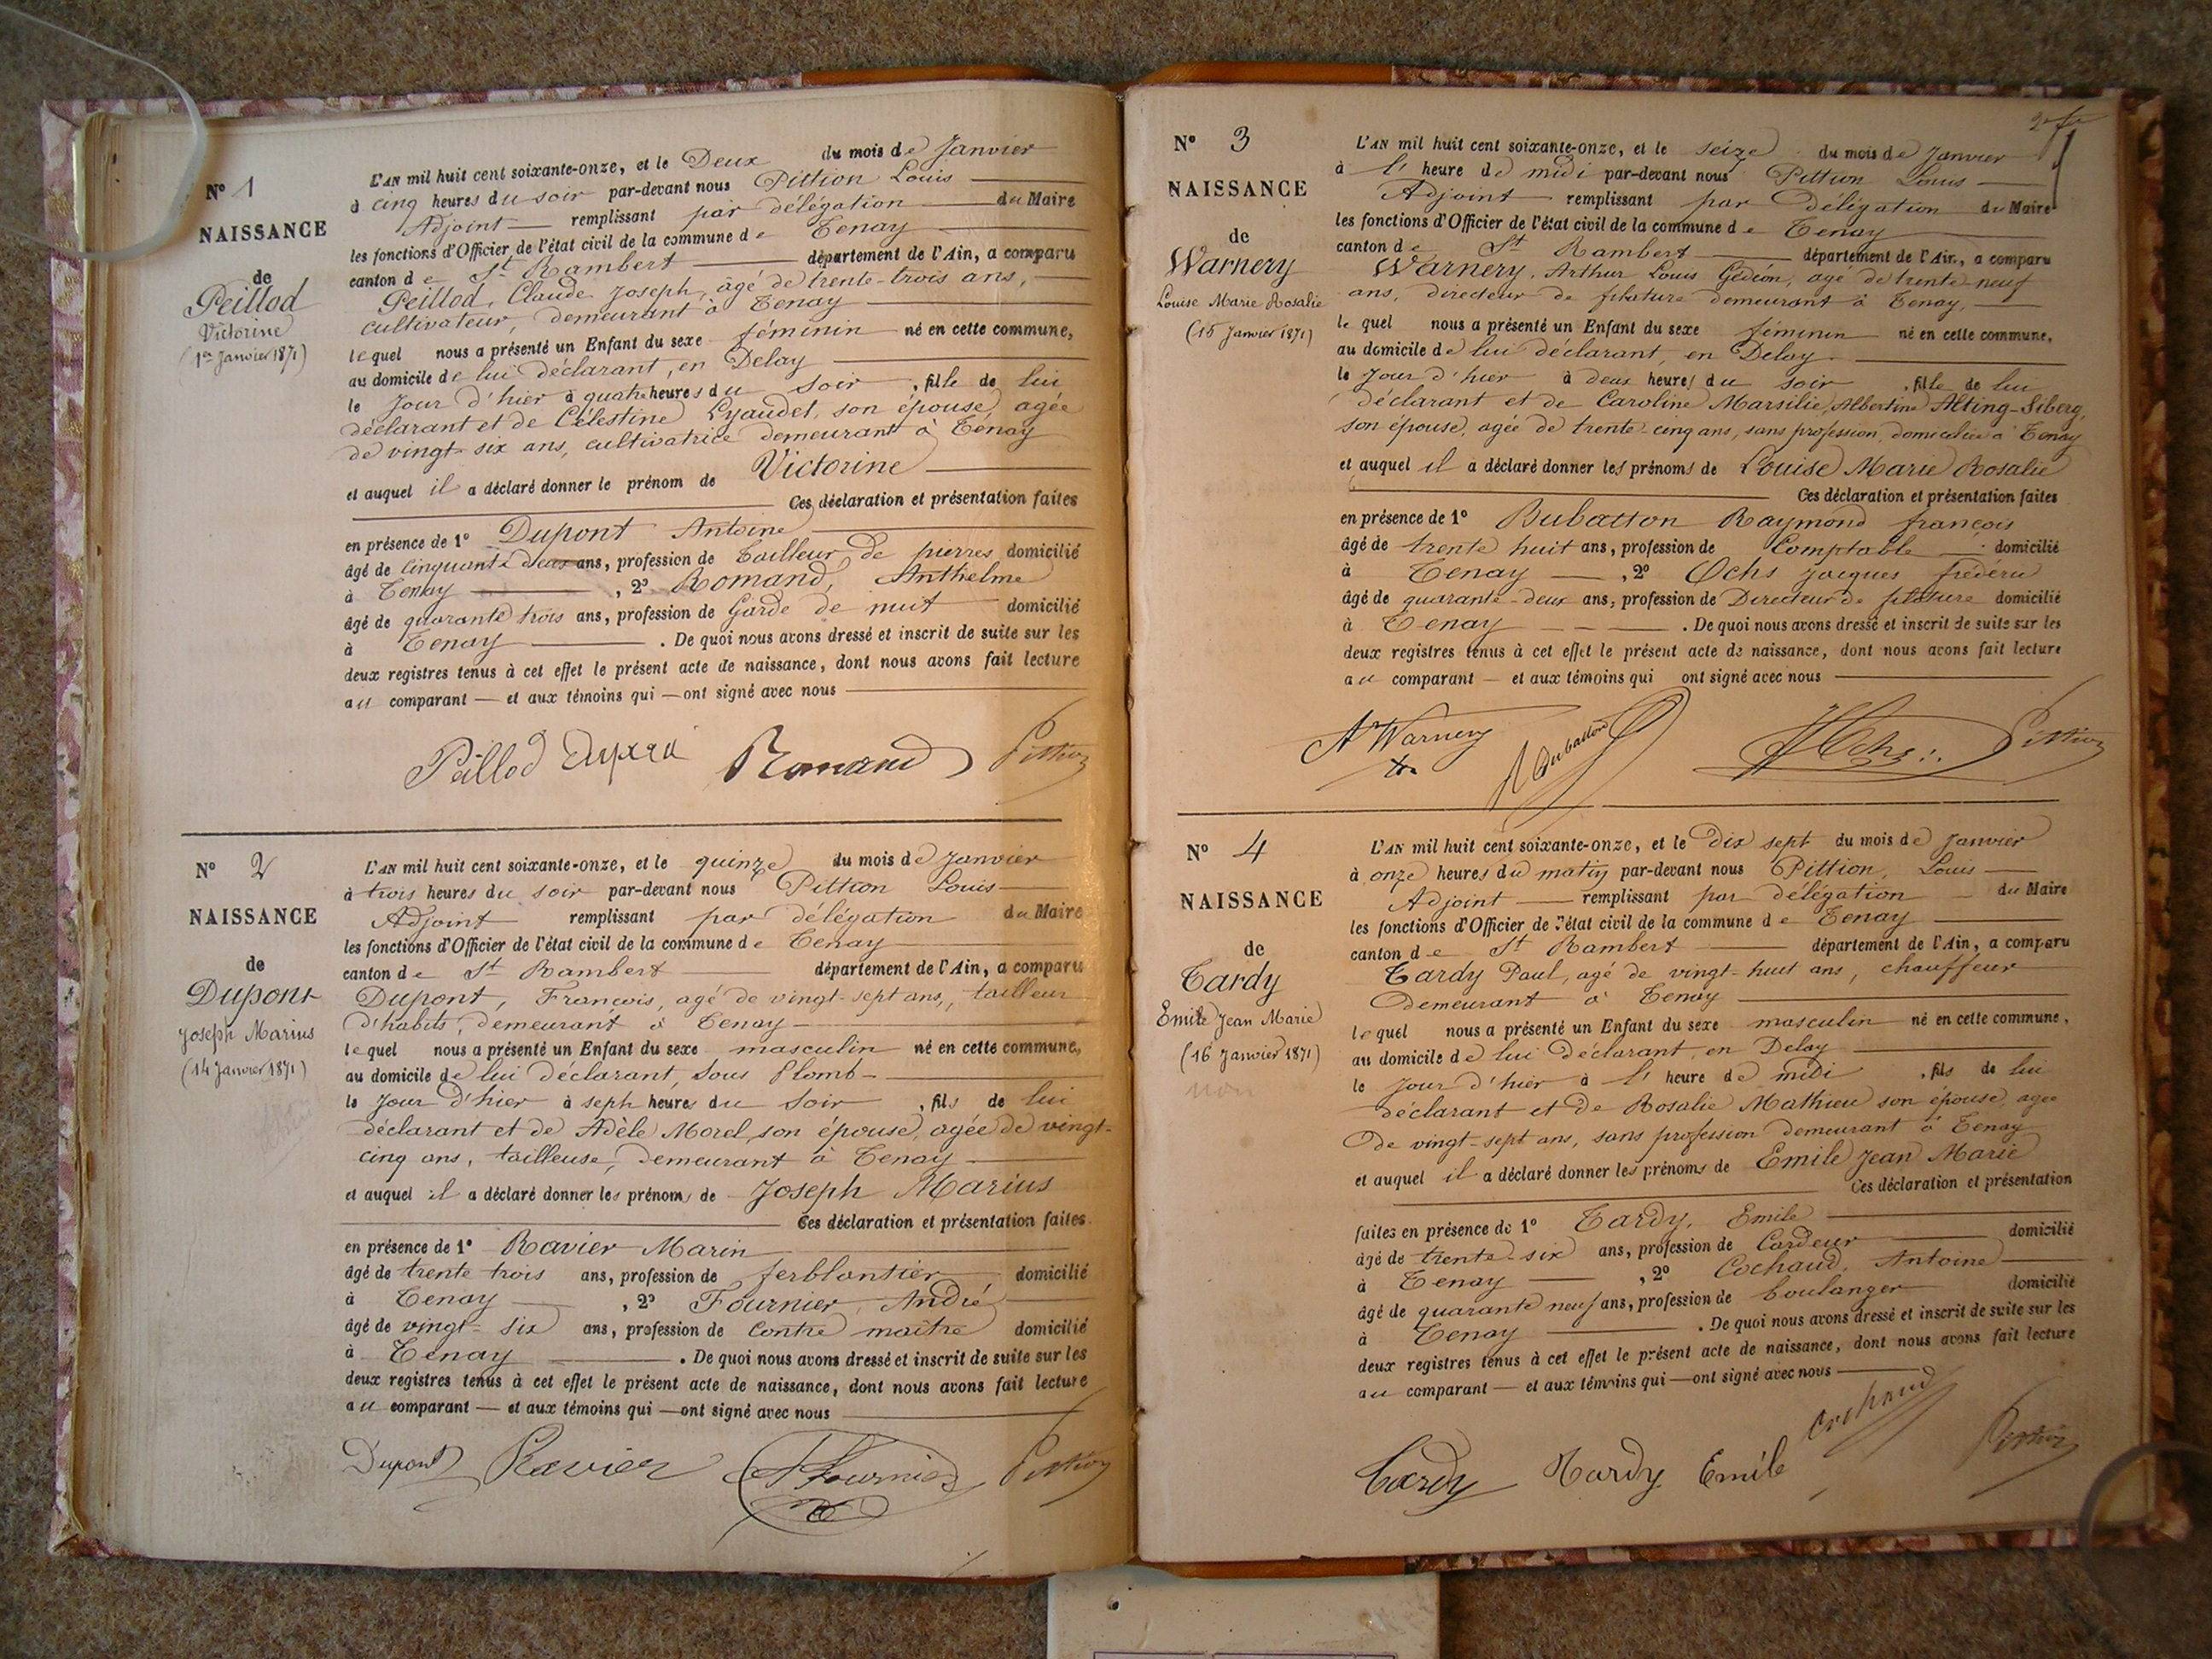 N° 1
NAISSANCE
de
Peillod
Victorine
(1er Janvier 1871)
L'AN mil huit cent soixante-onze, et le Deux du mois de Janvier
à cinq heures du soir par-devant nous Pittion Louis
Adjoint remplissant par délégation du Maire
les fonctions d'Officier de l'état civil de la commune de Tenay
canton de St Rambert département de l'Ain, a comparu
Peillod, Claude Joseph, agé de trente-trois ans,
cultivateur, demeurant à Tenay
lequel nous a présenté un Enfant du sexe féminin né en cette commune,
au domicile de lui déclarant, en Delay
le Jour d'hier à quatre heures du soir, fille de lui
déclarant et de Célestine Lyaudet, son épouse, agée
de vingt-six ans, cultivatrice demeurant à Tenay
et auquel il a déclaré donner le prénom de Victorine
Ces déclaration et présentation faites
en présence de 1° Dupont Antoine
âgé de cinquante deux ans, profession de Tailleur de pierres domicilié
à Tenay, 2° Romand, Anthelme
âgé de quarante trois ans, profession de Garde de nuit domicilié
à Tenay. De quoi nous avons dressé et inscrit de suite sur les
deux registres tenus à cet effet le présent acte de naissance, dont nous avons fait lecture
au comparant — et aux témoins qui — ont signé avec nous
Peillod Dupont Romand Pittion
N° 2
NAISSANCE
de
Dupont
Joseph Marius
(14 Janvier 1871)
L'AN mil huit cent soixante-onze, et le quinze du mois de Janvier
à trois heures du soir par-devant nous Pittion Louis
Adjoint remplissant par délégation du Maire
les fonctions d'Officier de l'état civil de la commune de Tenay
canton de St Rambert département de l'Ain, a comparu
Dupont, François, agé de vingt-sept ans, tailleur
d'habits, demeurant à Tenay
lequel nous a présenté un Enfant du sexe masculin né en cette commune,
au domicile de lui déclarant, sous Plomb
le Jour d'hier à seph heures du soir, fils de lui
déclarant et de Adèle Morel, son épouse, agée de vingt-
cinq ans, tailleuse, demeurant à Tenay
et auquel il a déclaré donner les prénoms de Joseph Marius
Ces déclaration et présentation faites
en présence de 1° Ravier Marin
âgé de trente trois ans, profession de ferblantier domicilié
à Tenay, 2° Fournier, André
âgé de vingt-six ans, profession de Contre maître domicilié
à Tenay. De quoi nous avons dressé et inscrit de suite sur les
deux registres tenus à cet effet le présent acte de naissance, dont nous avons fait lecture
au comparant — et aux témoins qui — ont signé avec nous
Dupont Ravier A Fournier Pittion
N° 3
NAISSANCE
de
Warnery
Louise Marie Rosalie
(15 Janvier 1871)
L'AN mil huit cent soixante-onze, et le seize du mois de Janvier
à l' heure de midi par-devant nous Pittion Louis
Adjoint remplissant par Délégation du Maire
les fonctions d'Officier de l'état civil de la commune de Tenay
canton de St Rambert département de l'Ain, a comparu
Warnery, Arthur Louis Gédéon, agé de trente-neuf
ans, directeur de filature demeurant à Tenay,
lequel nous a présenté un Enfant du sexe féminin né en cette commune,
au domicile de lui déclarant, en Delay
le Jour d'hier à deux heures du soir, fille de lui
déclarant et de Caroline Marsilie Albertine Alting-Siberg,
son épouse, agée de trente-cinq ans, sans profession, domiciliée à Tenay
et auquel il a déclaré donner les prénoms de Louise Marie Rosalie
Ces déclaration et présentation faites
en présence de 1° Bubatton Raymond françois
âgé de trente huit ans, profession de Comptable domicilié
à Tenay, 2° Ochs Jacques frédéric
âgé de quarante-deux ans, profession de Directeur de filature domicilié
à Tenay. De quoi nous avons dressé et inscrit de suite sur les
deux registres tenus à cet effet le présent acte de naissance, dont nous avons fait lecture
au comparant — et aux témoins qui ont signé avec nous
A Warnery Bubatton Ochs Pittion
N° 4
NAISSANCE
de
Tardy
Emile Jean Marie
(16 Janvier 1871)
non
L'AN mil huit cent soixante-onze, et le Dix sept du mois de Janvier
à onze heures du matin par-devant nous Pittion, Louis
Adjoint remplissant par délégation du Maire
les fonctions d'Officier de l'état civil de la commune de Tenay
canton de St Rambert département de l'Ain, a comparu
Tardy Paul, agé de vingt-huit ans, chauffeur
Demeurant à Tenay
lequel nous a présenté un Enfant du sexe masculin né en cette commune,
au domicile de lui déclarant, en Delay
le Jour d'hier à l' heure de midi, fils de lui
déclarant et de Rosalie Mathieu son épouse, agée
de vingt-sept ans, sans profession demeurant à Tenay
et auquel il a déclaré donner les prénoms de Emile Jean Marie
Ces déclaration et présentation
faites en présence de 1° Tardy, Emile
âgé de trente-six ans, profession de Cardeur domicilié
à Tenay, 2° Cochaud, Antoine
âgé de quarante neuf ans, profession de boulanger domicilié
à Tenay. De quoi nous avons dressé et inscrit de suite sur les
deux registres tenus à cet effet le présent acte de naissance, dont nous avons fait lecture
au comparant — et aux témoins qui — ont signé avec nous
Tardy Tardy Emile Cochaud Pittion